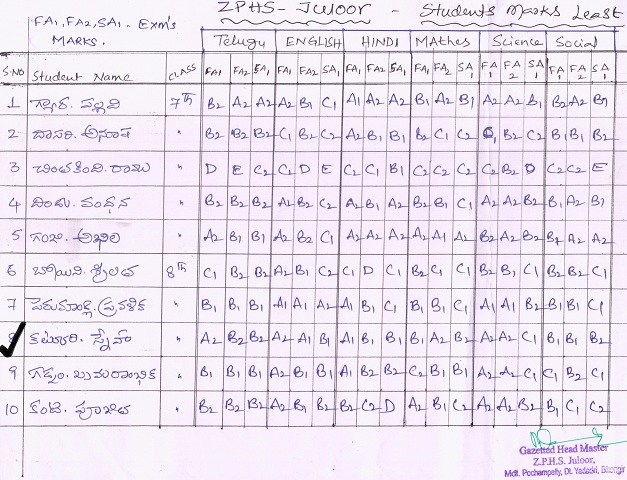 ZPHS- Juloor - Students Marks Least
FA1, FA2, SA1. Exm's
MARKS.
Telugu ENGLISH HINDI Mathes Science Social
S.NO Student Name CLASS FA1 FA2 SA1 FA1 FA2 SA1 FA1 FA2 SA1 FA1 FA2 SA1 FA1 FA2 SA1 FA1 FA2 SA1
1 గ్యార. పల్లవి 7th B2 A2 A2 A2 B1 C1 A1 A2 A2 B1 A2 B1 A2 A2 B1 B2 A2 B1
2 దాసరి. అనూష " B2 B2 B2 C1 B2 C2 A2 B1 B1 B2 C1 C2 C1 B2 C2 B1 B1 B2
3 చింతకింది. రాము " D E C2 C2 D E C2 C1 B1 C2 C2 C2 C2 B2 D C2 C2 E
4 దిండు. వందన " B2 B2 B2 A2 B2 C2 A2 B1 A2 B2 B1 C1 A2 A2 B2 B1 A2 B1
5 గంజి. అఖిల " A2 B1 B1 A2 B2 C1 A2 A2 A2 A2 A1 A2 B2 A2 B2 B1 A2 A2
6 శ్రీలత 8th C1 B2 B2 A2 B1 C2 C1 D C1 B2 C1 C1 B2 B2 C1 B2 B2 C1
7 పెరుమాండ్ల. ప్రవళిక " B1 B1 B1 A1 A1 A2 A1 B1 C1 B1 B1 C1 A1 A1 B2 B1 B1 C1
8 కటూరి. స్నేహా " A2 B2 B2 A2 A1 B1 A1 B1 B1 B1 A2 B2 A2 A2 C1 B1 B1 B2
9 గడ్డం. " B1 B1 B1 A2 B1 B1 A1 B2 B2 C2 B1 B1 A2 A2 C1 C1 B2 C1
10 కంటె. పూజిత " B2 B2 B2 A2 B1 B2 B2 C2 D A2 B1 C2 A2 A2 B2 B1 C1 C2
Gazetted Head Master
Z.P.H.S. Juloor,
Mdl. Pochampally, Dt. Yadadri, Bhongir